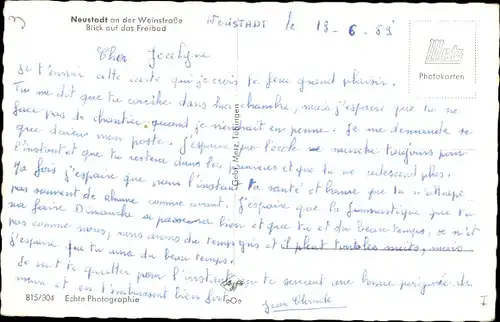 Neustadt an der Weinstraße
Blick auf das Freibad
NEUSTADT le 13-6-69
Metz
Photokarten
Cher Jocelyne
Je t'envoie cette carte qui je crois te fera grand plaisir.
Tu me dit que tu couche dans ma chambre, mais j'espère que tu ne
face pas le chantier quand je viendrait en perme. Je me demande ce
que devient mon poste. J'espère que l'école ne marche toujours pour
l'instant et que tu restera dans les premières et que tu ne redescend plus.
Ta fois j'espère que pour l'instant ta santé et bonne que tu n'attrape
pas souvent de Rhume comme avant. J'espère que la Gymnastique que tu
va faire Dimanche se passera bien et que tu du beau temps, se n'et
pas comme nous, nous avons du temps gris et il pleut toutes les nuits, mais
j'espère que tu aura du beau temps.
Je vait te quitter pour l'instant en te serrant une bonne poignée de
main et en t'embrassant bien fort
Jean Claude
Gebr. Metz, Tübingen
815/304 Echte Photographie